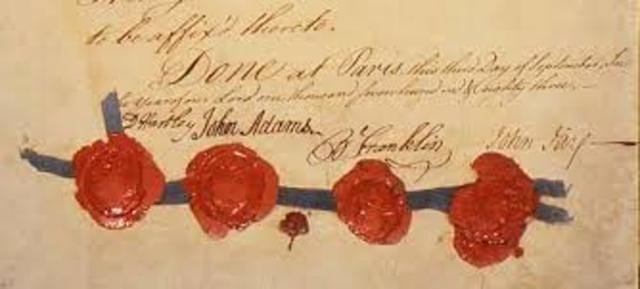 to be affix'd thereto.
Done at Paris, this third Day of September, In
Year of our Lord one thousand seven hundred & eighty three.
D Hartley John Adams B Franklin John Jay